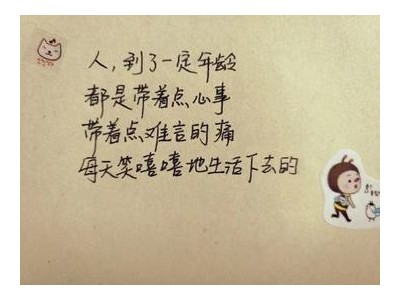 人，到了一定年龄
都是带着点心事
带着点难言的痛
每天笑嘻嘻地生活下去的